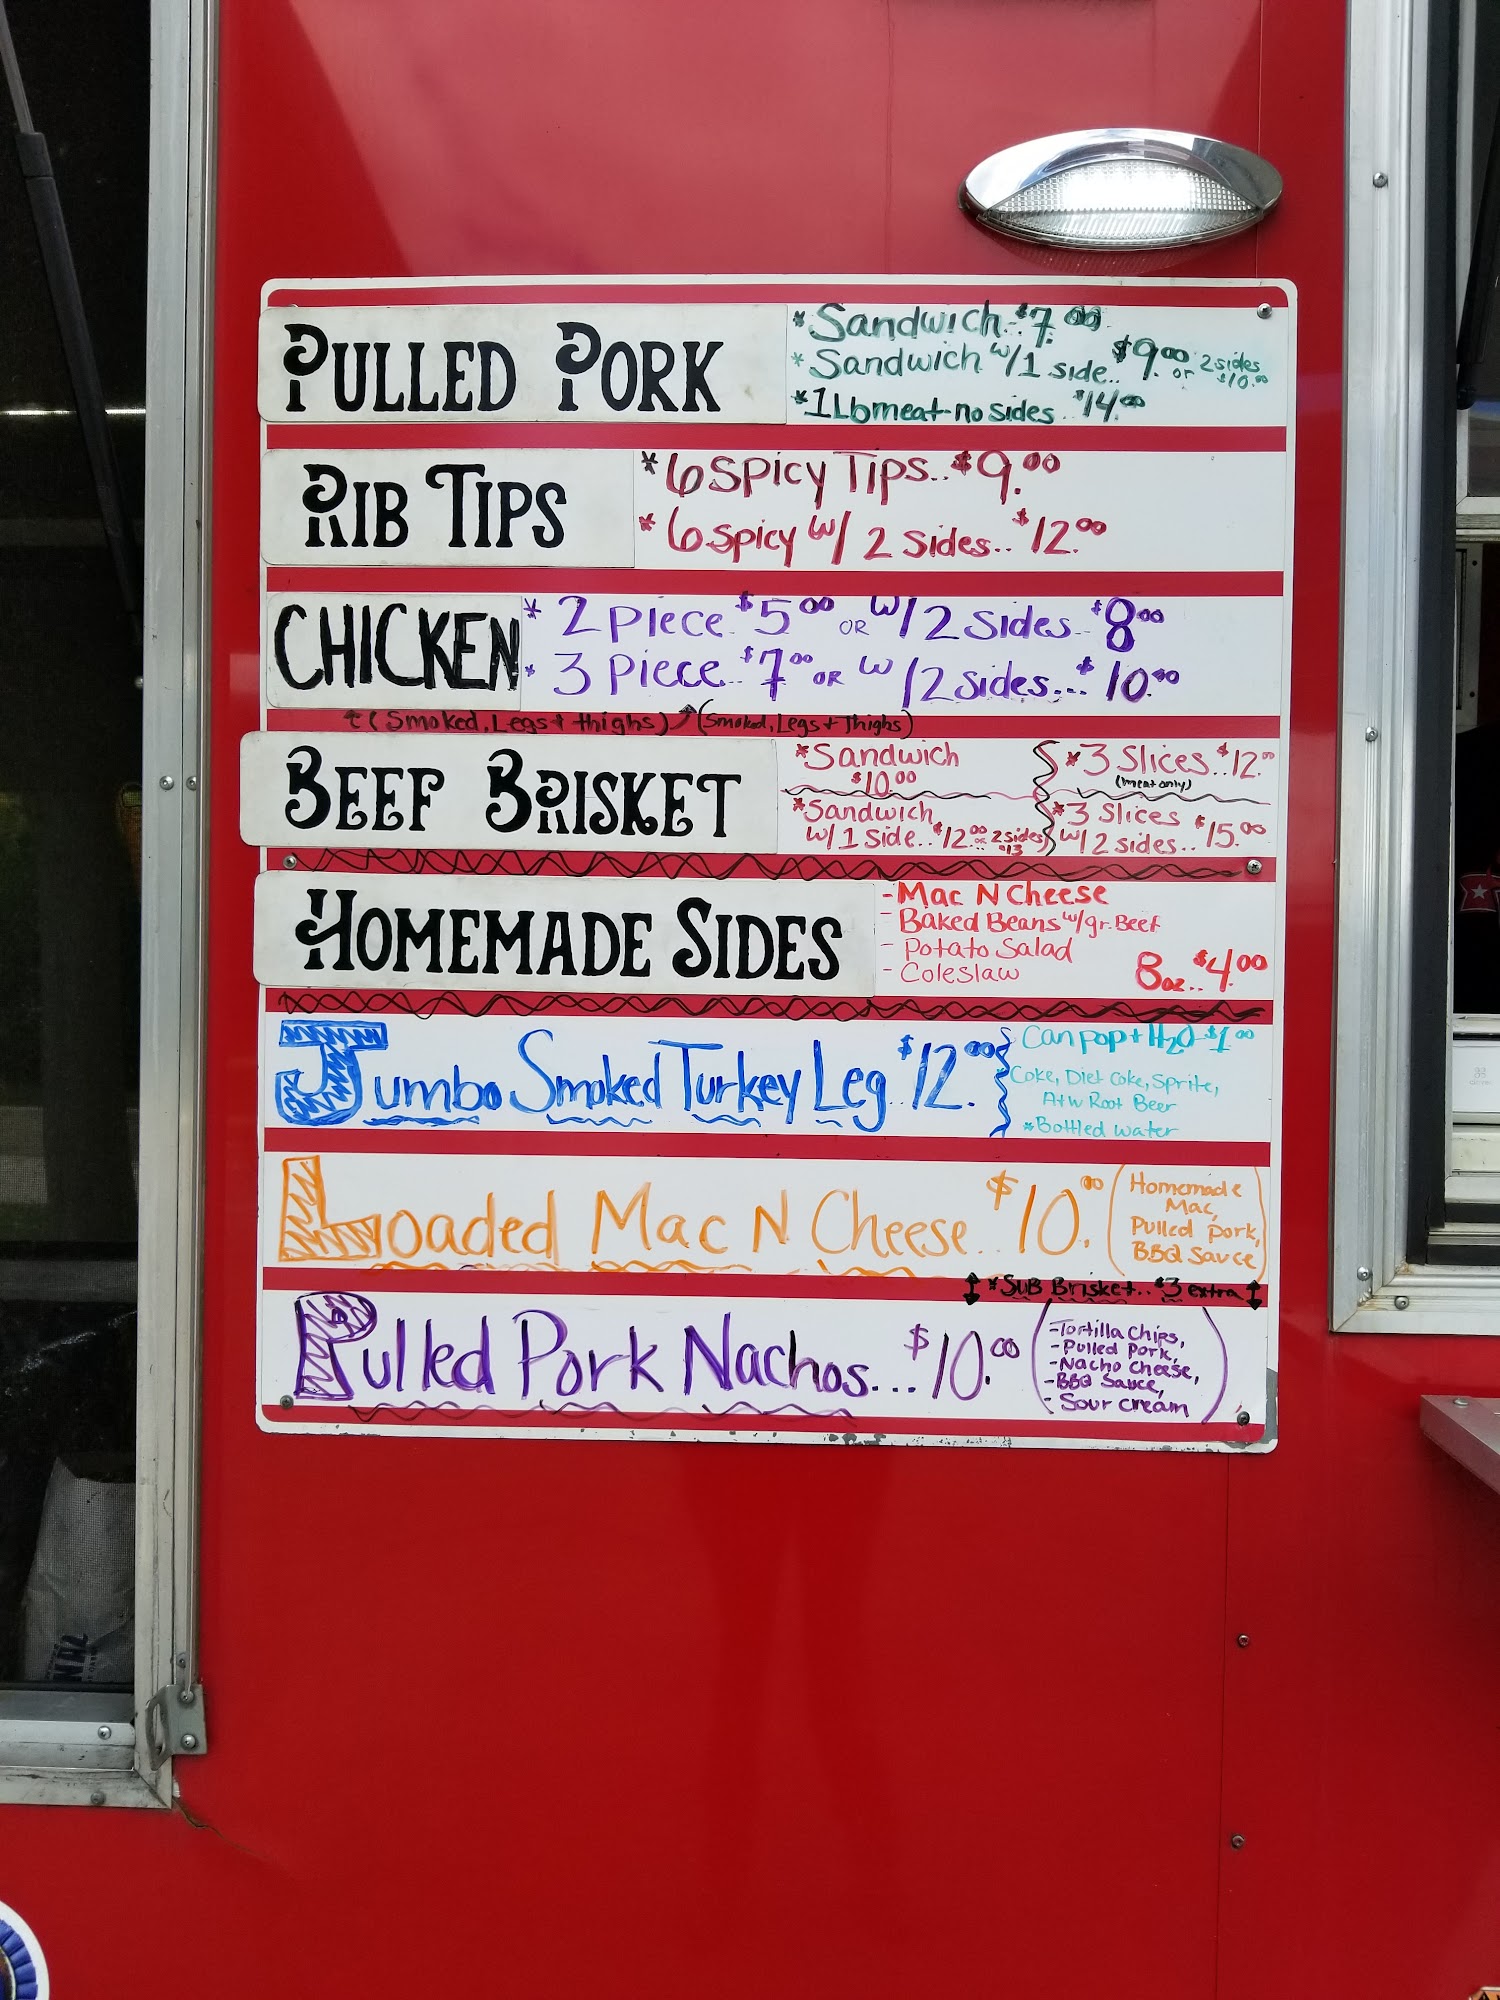 PULLED PORK
*Sandwich..$7.00
*Sandwich w/1 side..$9.00 or 2 sides $10.00
*1Lb meat-no sides..$14.00
RIB TIPS
*6 Spicy Tips..$9.00
*6 Spicy w/ 2 Sides..$12.00
CHICKEN
* 2 Piece..$5.00 OR w/2 Sides..$8.00
* 3 Piece..$7.00 OR w/2 sides...$10.00
(Smoked, Legs + thighs) (Smoked, Legs + Thighs)
BEEF BRISKET
*Sandwich
$10.00
*Sandwich
w/1 side..$12.00 or 2 sides $13
*3 Slices..$12.00
(meat only)
*3 Slices
w/2 sides..$15.00
HOMEMADE SIDES
-Mac N Cheese
-Baked Beans w/gr. Beef
-Potato Salad
-Coleslaw
8oz..$4.00
Jumbo Smoked Turkey Leg $12.00
Can pop + H2O $1.00
Coke, Diet Coke, Sprite,
A+W Root Beer
*Bottled water
Loaded Mac N Cheese..$10.00
(Homemade
Mac,
Pulled Pork,
BBQ Sauce)
*SUB Brisket..$3 extra
Pulled Pork Nachos...$10.00
(-Tortilla Chips,
-Pulled Pork,
-Nacho Cheese,
-BBQ Sauce,
-Sour cream)